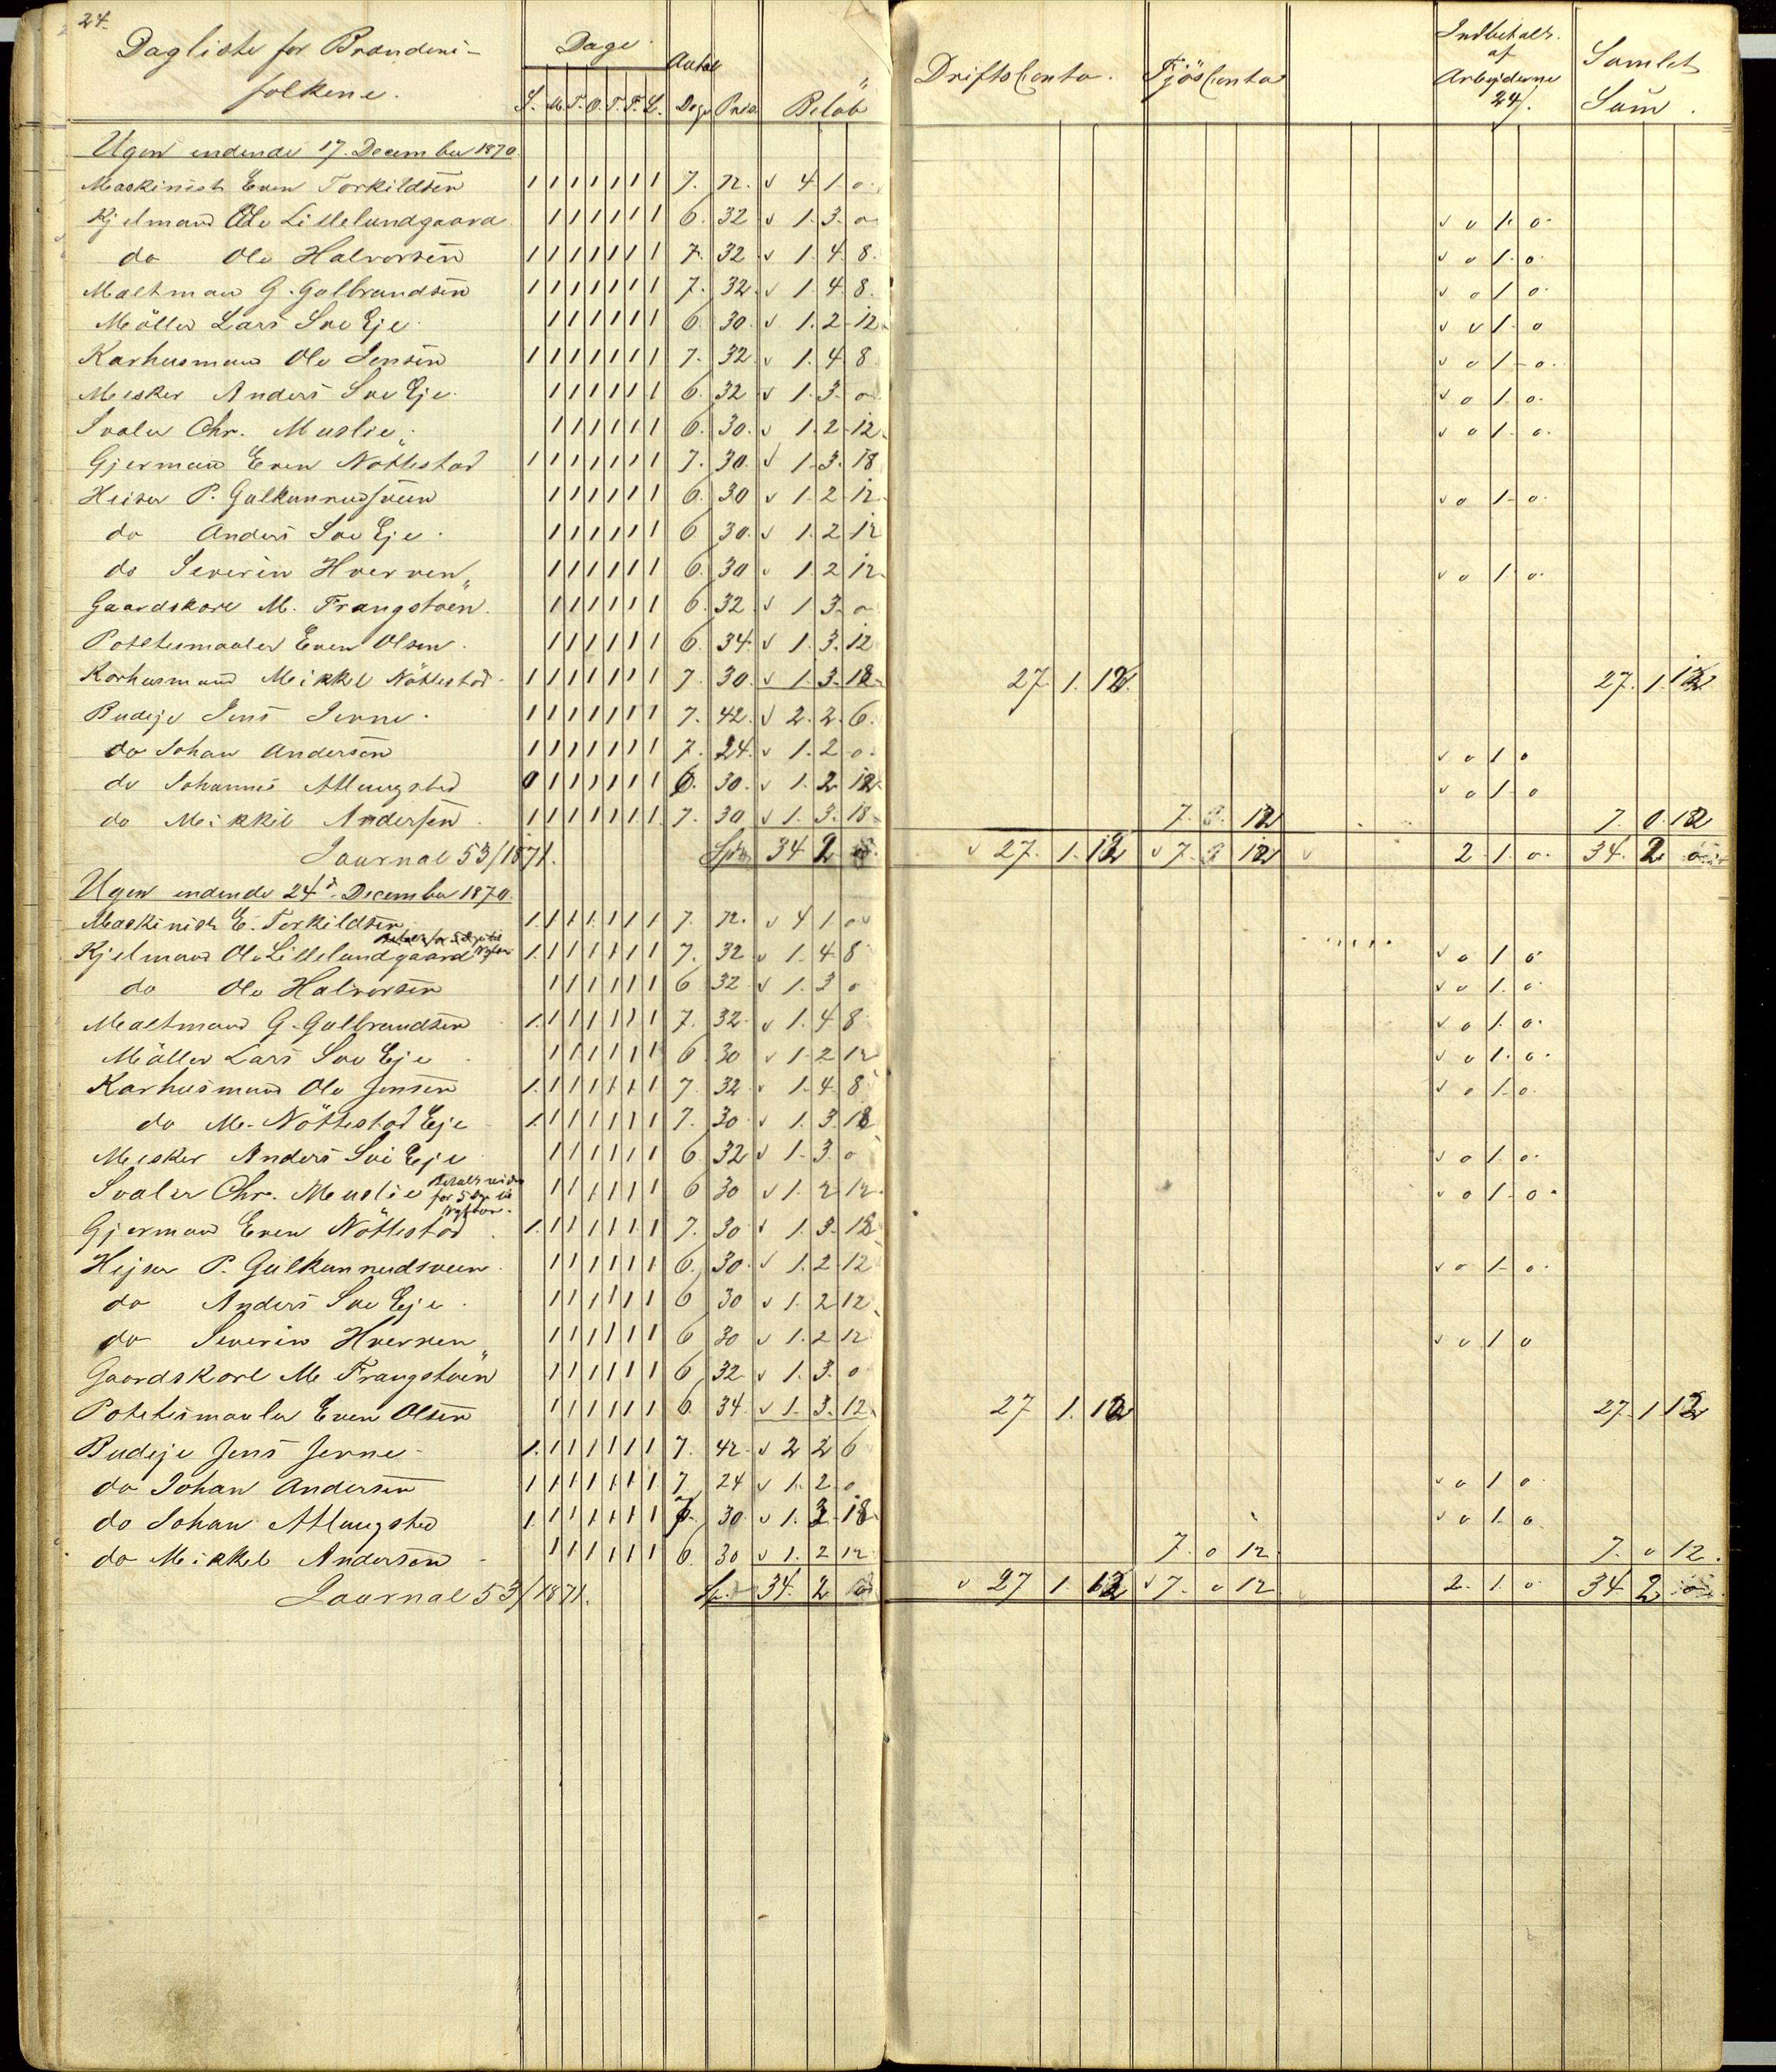 24.
Dagliste for Brænderi-
folkene.
Dage
Antal
S. M. T. O. T. F. L. Dage Pris Beløb
DriftsConto. FjösConto
Indbetalt af Arbejderne 24/.
Samlet Sum.
Ugen endende 17. December 1870.
Maskinist Even Torkildsen 1 1 1 1 1 1 1 7. 72. v 4 1 0
Kjelmand Ole Lillelundgaard 1 1 1 1 1 1 6. 32 v 1. 3. 0 v 0 1. 0.
do Ole Halvorsen 1 1 1 1 1 1 1 7. 32 v 1. 4. 8. v 0 1. 0.
Maltmand G. Gulbrandsen 1 1 1 1 1 1 1 7. 32. v 1. 4. 8. v 0 1 0.
Möller Lars Sve Eje. 1 1 1 1 1 1 6. 30. v 1. 2. 12 v v 1. 0
Karhusmand Ole Jensen 1 1 1 1 1 1 1 7. 32. v 1. 4. 8 v 0 1. 0.
Mesker Anders Sve Eje. 1 1 1 1 1 1 6. 32 v 1. 3. 0 v 0 1. 0.
Svaler Chr. Muslie. 1 1 1 1 1 1 6. 30. v 1. 2. 12. v 0 1. 0.
Gjermand Even Nöttestad 1 1 1 1 1 1 1 7. 30. v 1. 3. 18
Heiser P. Gulkunnudsveen 1 1 1 1 1 1 6. 30 v 1. 2 12. v 0 1. 0.
do Anders Sve Eje. 1 1 1 1 1 1 6 30. v 1. 2 12
do Severin Hverven 1 1 1 1 1 1 6. 30 v 1. 2 12. v 0 1. 0.
Gaardskarl M. Frangstöen. 1 1 1 1 1 1 6. 32. v 1 3. 0
Potetesmaaler Even Olsen. 1 1 1 1 1 1 6. 34. v 1. 3. 12
Karhusmand Mikkel Nöttestad 1 1 1 1 1 1 1 7. 30. v 1. 3. 18. 27. 1. 12. 27. 1. 12
Budeje Jens Jerne. 1 1 1 1 1 1 1 7. 42. v 2. 2. 6.
do Johan Andersen 1 1 1 1 1 1 1 7. 24. v 1. 2. 0. v 0 1 0
do Johannes Atlungstad 0 1 1 1 1 1 1 6. 30. v 1. 2 12 v 0 1. 0
do Mikkel Andersen. 1 1 1 1 1 1 1 7. 30 v 1. 3. 18. 7. 0. 12 7. 0. 12
Journal 53/1871. 34 2 v 27. 1. 12 v 7. 0 12 v 2. 1. 0. 34. 2. 0
Ugen endende 24d. December 1870.
Maskinist E. Torkildsen 1 1 1 1 1 1 1 7. 72. v 4 1 0
Kjelmand Ole Lillelundgaard 1 1 1 1 1 1 1 7. 32 v 1. 4. 8 v 0 1 0
do Ole Halvorsen 1 1 1 1 1 1 6 32 v 1. 3 0 v 0 1. 0
Maltmand G. Gulbrandsen 1 1 1 1 1 1 1 7. 32. v 1. 4 8 v 0 1. 0.
Möller Lars Sve Eje 1 1 1 1 1 1 6 30 v 1. 2 12 v 0 1. 0.
Karhusmand Ole Jensen 1 1 1 1 1 1 1 7. 32 v 1. 4. 8 v 0 1. 0.
do M. Nöttestad Eje 1 1 1 1 1 1 1 7. 30. v 1. 3. 18
Mesker Anders Sve Eje 1 1 1 1 1 1 6. 32 v 1. 3. 0 v 0 1. 0.
Svaler Chr. Muslie 1 1 1 1 1 1 6 30 v 1. 2 12. v 0 1. 0.
for 5 Dge til Nytaar.
Gjermand Even Nöttestad. 1 1 1 1 1 1 1 7. 30 v 1. 3. 18
Hejser P. Gulkunnudsveen 1 1 1 1 1 1 6. 30. v 1. 2 12 v 0 1. 0.
do Anders Sve Eje. 1 1 1 1 1 1 6 30 v 1. 2 12.
do Severin Hverven 1 1 1 1 1 1 6 30 v 1. 2 12 v 0 1 0
Gaardskarl M Frangstöen 1 1 1 1 1 1 6 32 v 1. 3. 0
Potetesmaaler Even Olsen 1 1 1 1 1 1 6. 34. v 1. 3. 12. 27 1. 12 27. 1 12
Budeje Jens Jerne 1 1 1 1 1 1 1 7. 42. v 2 2 6
do Johan Andersen 1 1 1 1 1 1 1 7 24 v 1. 2 0. v 0 1 0.
do Johan Atlungstad 1 1 1 1 1 1 1 7. 30. v 1. 3. 18 v 0 1. 0
do Mikkel Andersen 1 1 1 1 1 1 6. 30 v 1. 2 12. 7. 0 12. 7. 0 12.
Journal 53/1871. Sp. 34. 2 v 27 1. 12 v 7. 0 12 2. 1. 0. 34. 2 0